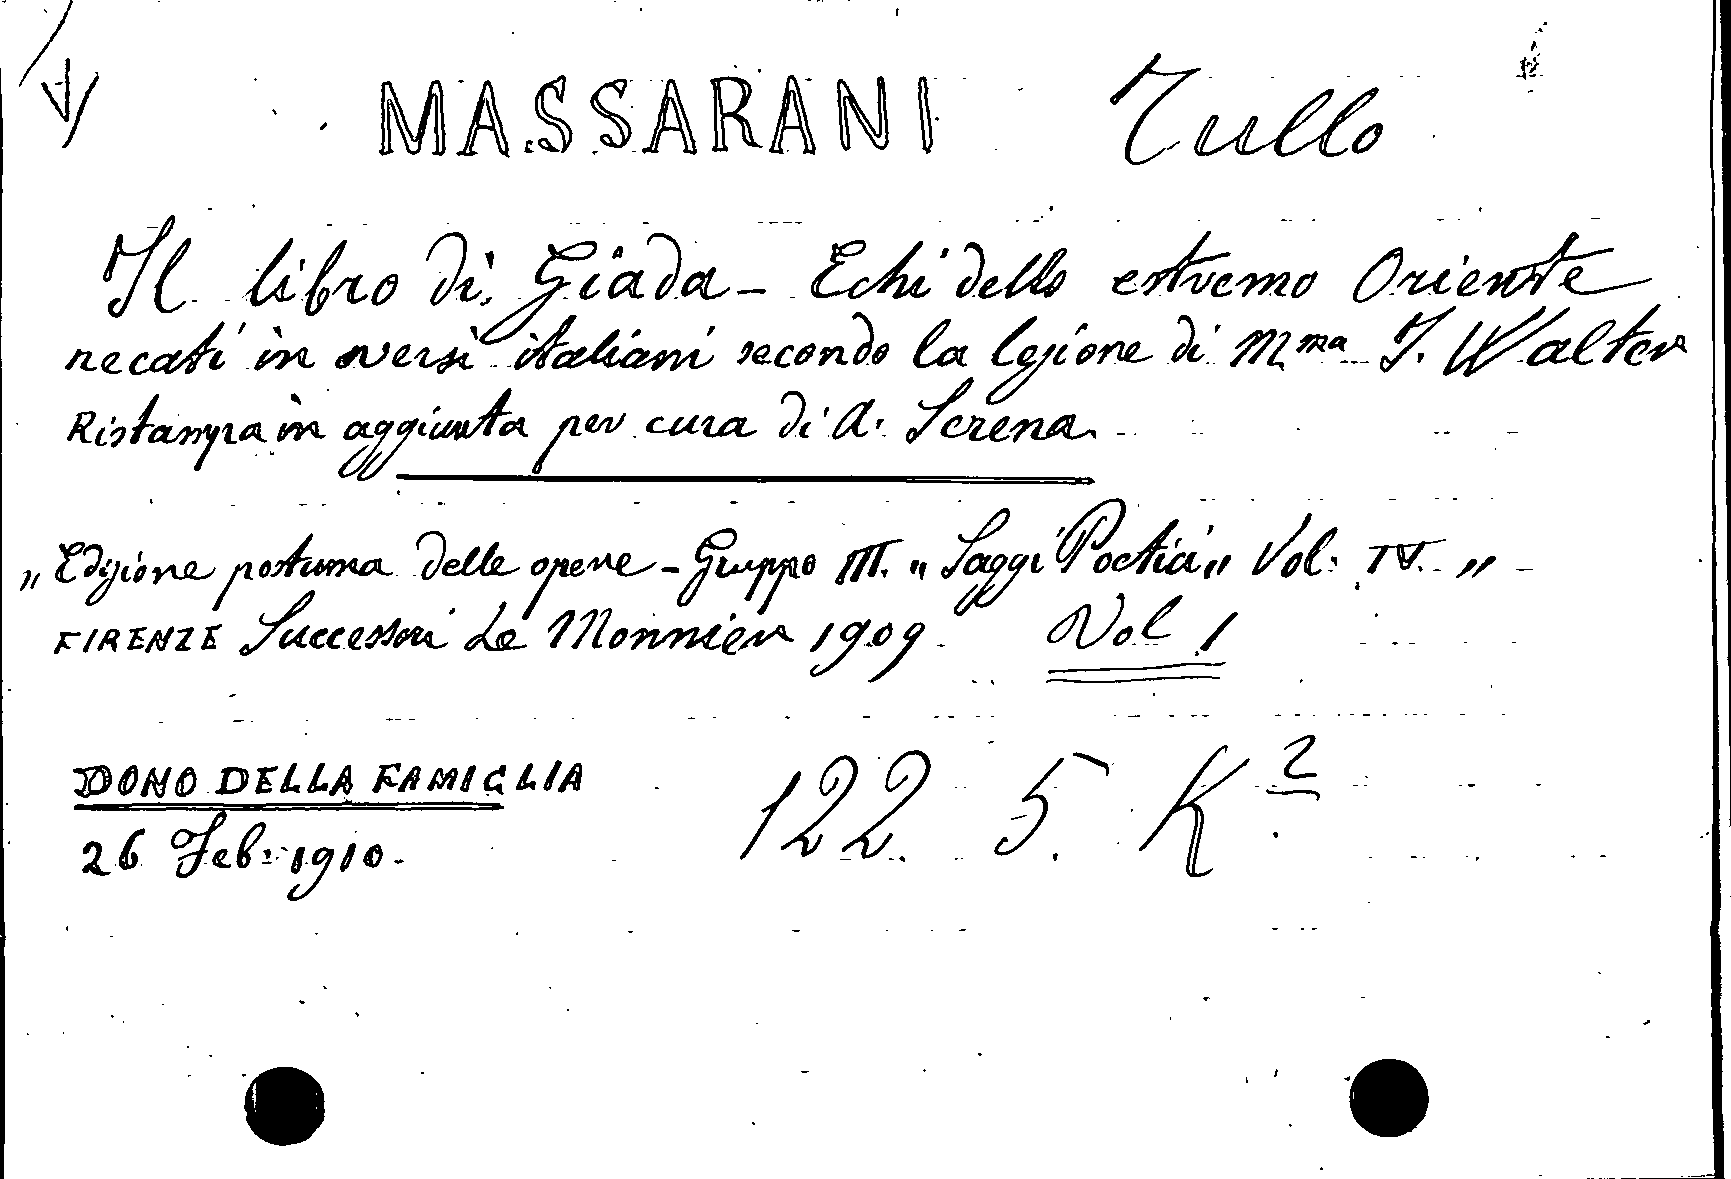 MASSARANI Tullo
Il libro di Giada - Echi dello estremo Oriente
recati in versi italiani secondo la lezione di Mma J. Walter
Ristampa in aggiunta per cura di A. Serena
„Edizione postuma delle opere - Gruppo III. „Saggi Poetici„ Vol: IV. „
FIRENZE Successori Le Monnier 1909. Vol 1
DONO DELLA FAMIGLIA
122. 5. K2
26 Feb: 1910.